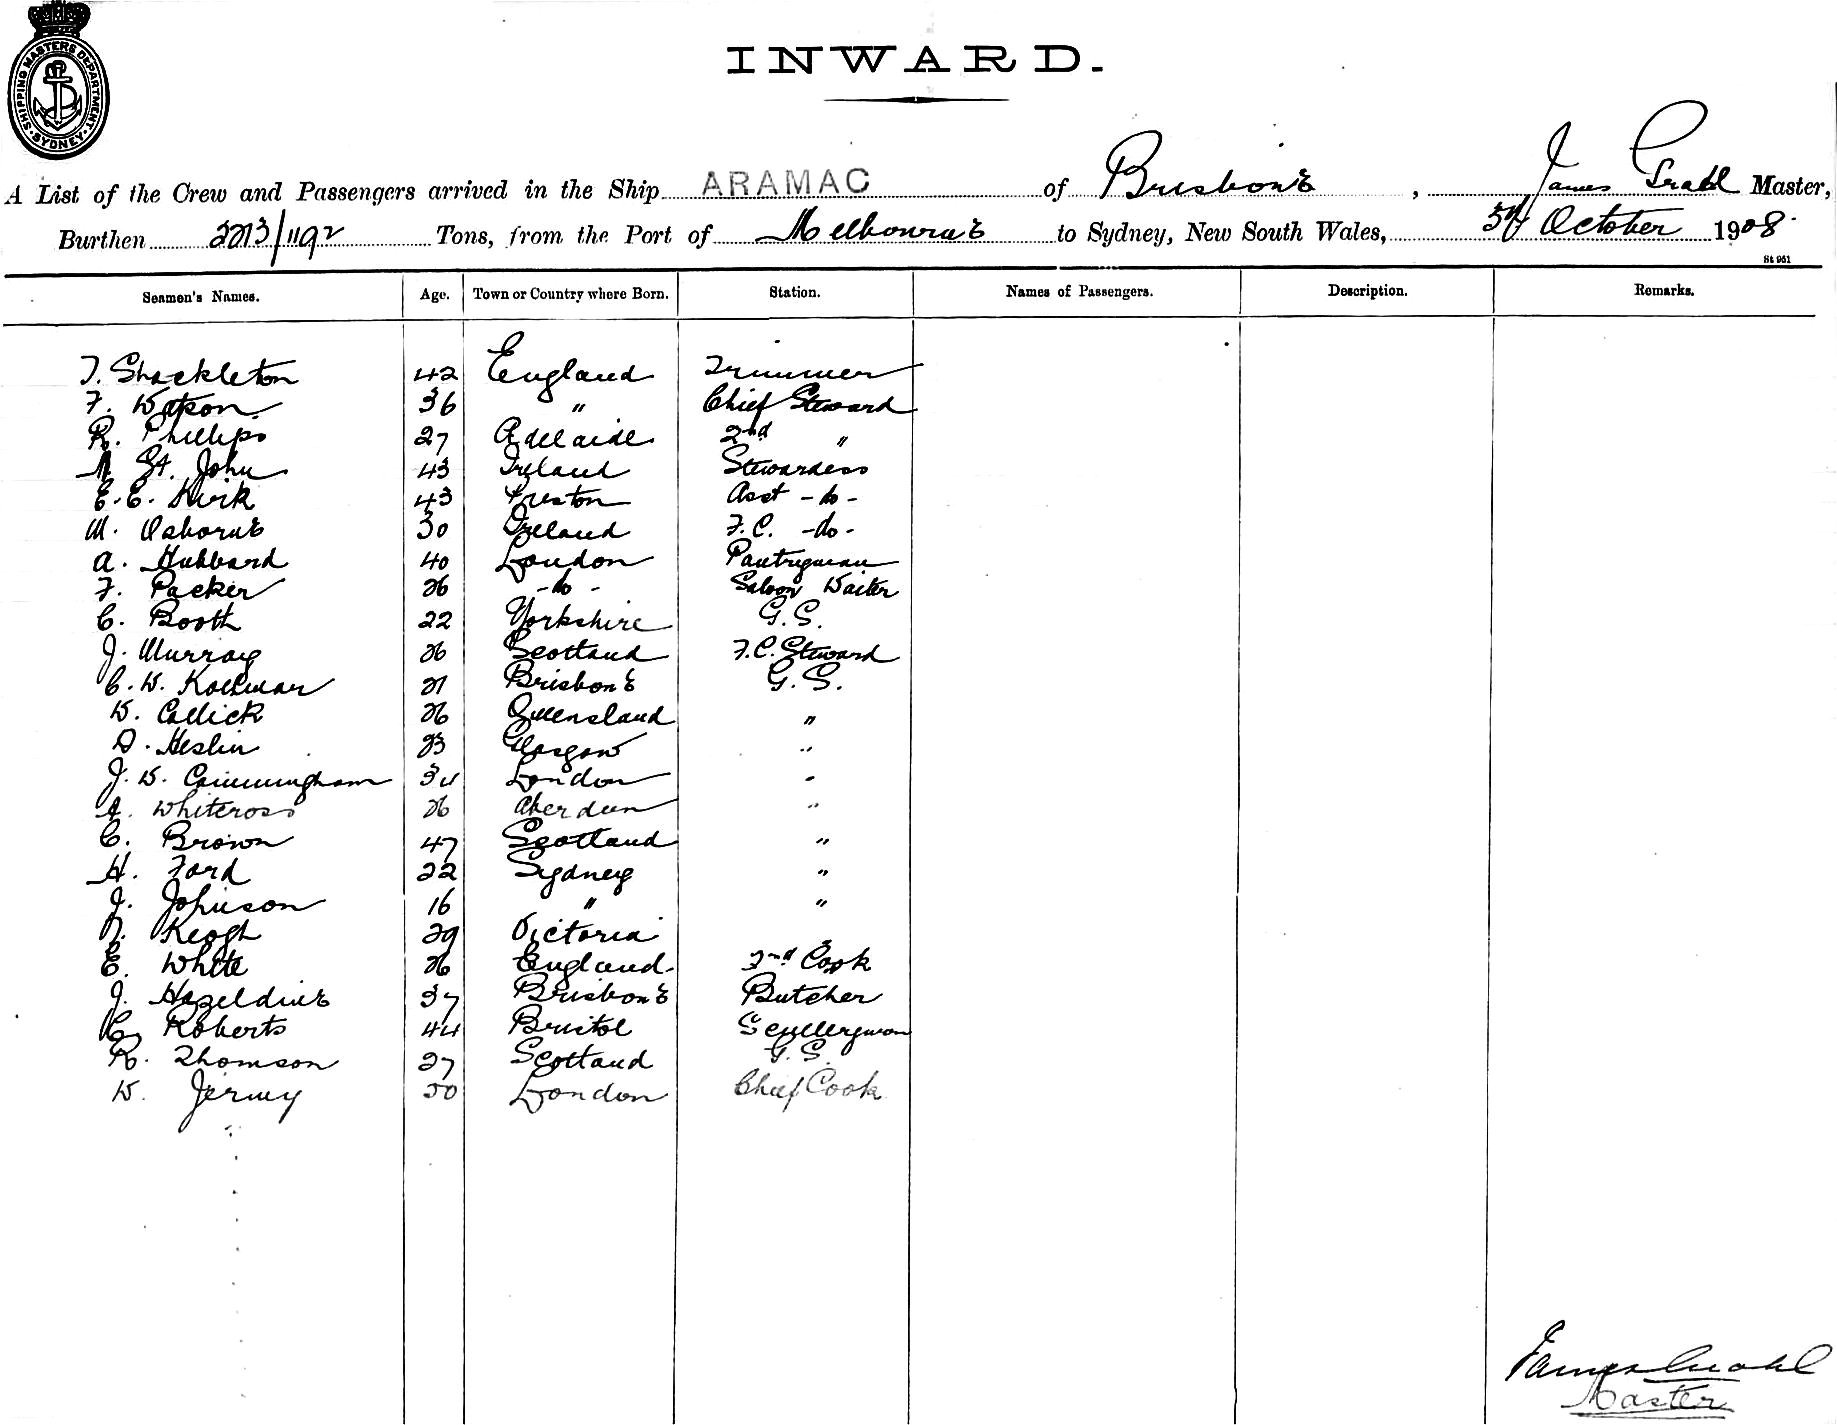 SHIPPING MASTERS DEPARTMENT. SYDNEY
INWARD.
A List of the Crew and Passengers arrived in the Ship ARAMAC of Brisbane, James Grahl Master,
Burthen 2213/1192 Tons, from the Port of Melbourne to Sydney, New South Wales, 5th October 1908.
St 951
Seamen's Names. Age. Town or Country where Born. Station. Names of Passengers. Description. Remarks.
T. Shackleton 42 England Trimmer
F. Watson 36 " Chief Steward
R. Phillips 27 Adelaide 2nd "
St. John 43 Ireland Stewardess
E. E. Kirk 43 Preston Asst -do-
M. Osborne 30 Ireland F.C. -do-
A. Hubbard 40 London Pantryman
F. Packer 26 -do- Saloon Waiter
C. Booth 22 Yorkshire G.S.
J. Murray 26 Scotland F.C. Steward
C. W. 21 Brisbane G.S.
W. Collick 26 Queensland "
D. Heslin 23 Glasgow "
J. W. Cunningham 34 London "
A. Whitcross 26 Aberdeen "
C. Brown 47 Scotland "
H. Ford 22 Sydney "
J. Johnson 16 " "
Keogh 29 Victoria
E. White 26 England. 2nd Cook
J. Hazeldine 37 Brisbane Butcher
C. Roberts 44 Bristol Sculleryman
R. Thomson 27 Scotland G.S.
W. Jermy 50 London Chief Cook
James Grahl
Master